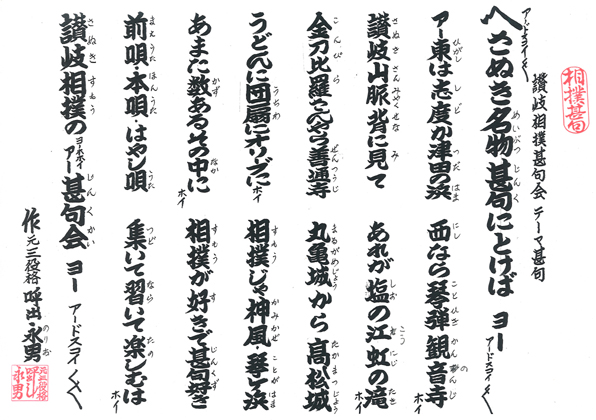 相撲甚句
讃岐相撲甚句会 テーマ甚句
アードスコイ〱
へさぬき名物甚句にとけば ヨー
アードスコイ〱
アー東は志度か津田の浜
西なら琴弾観音寺
讃岐山脈背に見て
あれが塩の江虹の滝
ホイ
金刀比羅さんやら善通寺
丸亀城から高松城
うどんに団扇にオリーブに
ホイ
相撲じゃ神風・琴ヶ浜
あまた数あるその中に
ホイ
相撲が好きで甚句好き
前唄・本唄・はやし唄
集いて習いて楽しむは
ホイ
讃岐相撲の
ヨーホホイ
アー甚句会 ヨー
アードスコイ〱
作 元三役格 呼出・永男
元三役格
呼出し
永男